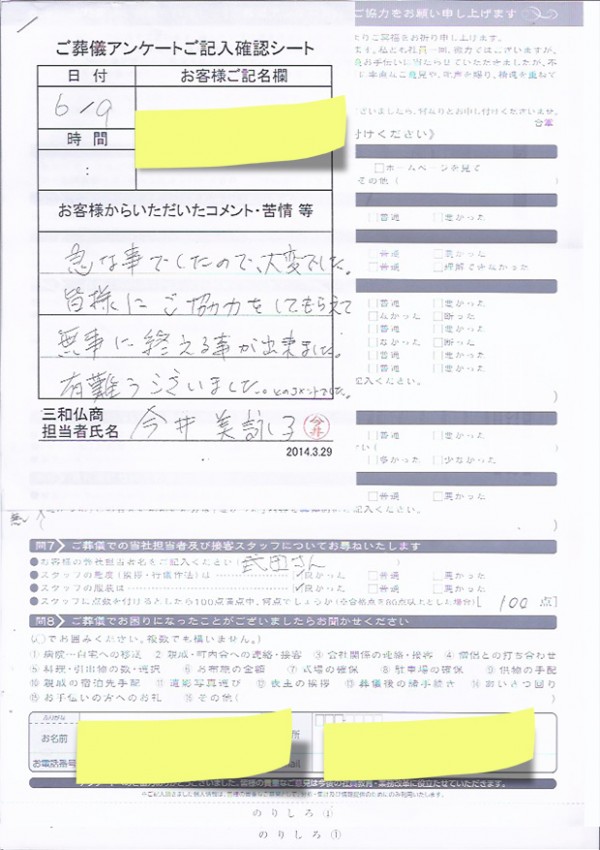 ご協力をお願い申し上げます
ご葬儀アンケートご記入確認シート
日付 お客様ご記名欄
6/9
時間
:
お客様からいただいたコメント・苦情 等
急な事でしたので、大変でした。
皆様にご協力をしてもらえて
無事に終える事が出来ました。
有難うございました。とのコメントでした。
三和仏商
担当者氏名 今井 美詠子 今井
2014.3.29
付けください》
□ホームページを見て
その他(
□普通 □悪かった
□普通 □悪かった
□普通 □理解できなかった
□普通 □悪かった
□なかった □断った
□普通 □悪かった
□なかった □断った
□普通 □悪かった
□普通 □悪かった
記入ください。
□普通 □悪かった
□多かった □少なかった
□普通 □悪かった
無し
問7 ご葬儀での当社担当者及び接客スタッフについてお尋ねいたします
●お客様の弊社担当者名をご記入ください( 武田さん )
●スタッフの態度(挨拶・行儀作法)は □良かった □普通 □悪かった
●スタッフの服装は □良かった □普通 □悪かった
●スタッフに点数を付けるとしたら100点満点中、何点でしょうか(※合格点を80点以上とした場合)[ 100 点]
問8 ご葬儀でお困りになったことがございましたらお聞かせください
(○でお囲みください。複数でも構いません。)
①病院…自宅への移送 2 親戚・町内会への連絡・接客 ③会社関係の連絡・接客 ④僧侶との打ち合わせ
⑤料理・引出物の数・選択 ⑥お布施の金額 ⑦式場の確保 ⑧駐車場の確保 ⑨供物の手配
⑩親戚の宿泊先手配 ⑪遺影写真選び ⑫喪主の挨拶 ⑬葬儀後の諸手続き ⑭あいさつ回り
⑮お手伝いの方へのお礼 ⑯その他(
ふりがな
お名前 所
お電話番号 mail
のりしろ①
のりしろ①